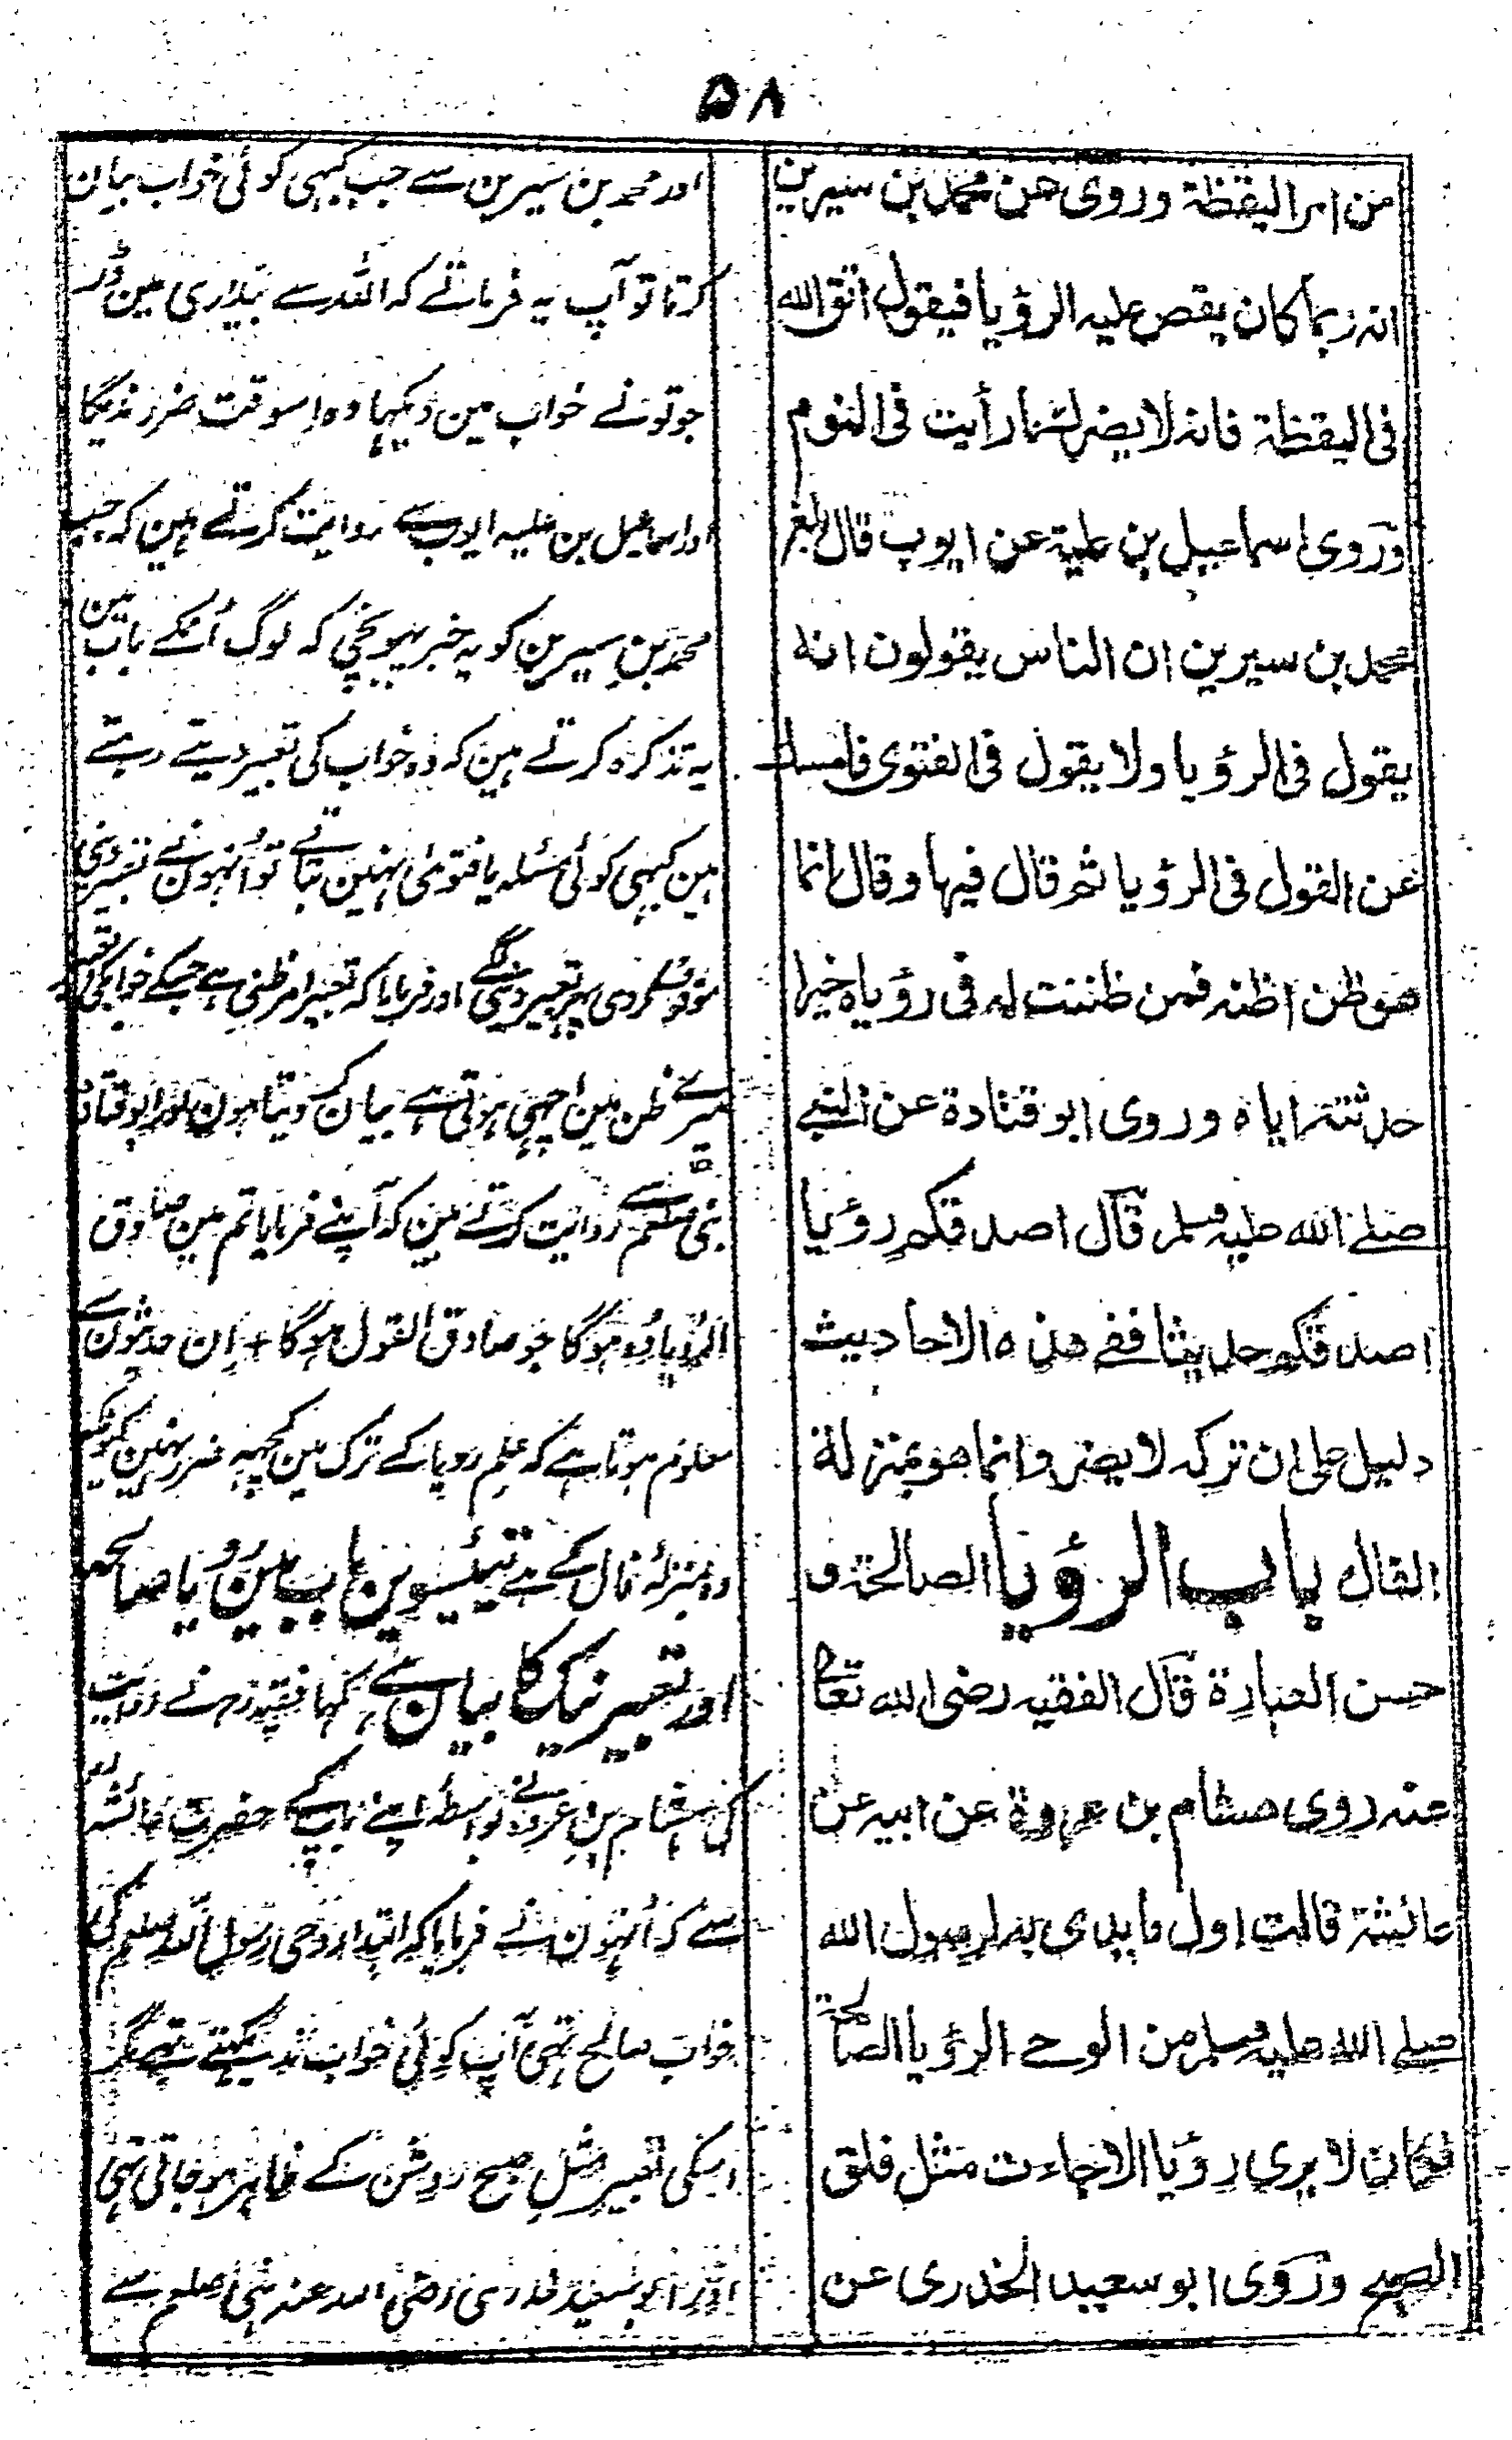 ۵۸
من امر اليقظة وروى عن محمد بن سيرين
انه ربما كان يقص عليه الرؤيا فيقول اتق الله
فى اليقظة فانه لا يضرك ما رأيت فى النوم
وروى اسماعيل بن علية عن ايوب قال بلغ
محمد بن سيرين ان الناس يقولون انه
يقول فى الرؤيا ولا يقول فى الفتوى فامسك
عن القول فى الرؤيا ثم قال فيها وقال انما
هو ظن اظنه فمن ظننت له فى رؤياه خيرا
حدثته اياه وروى ابو قتادة عن النبے
صلے الله عليه وسلم قال اصدقكم رؤيا
اصدقكم حديثا ففے هذه الاحاديث
دليل على ان تركه لا يضر وانما هو بمنزلة
الفال باب الرؤيا الصالحة و
حسن العبارة قال الفقيه رضى الله تعالى
عنه روى هشام بن عروة عن ابيه عن
عائشة قالت اول ما بدى به رسول الله
صلے الله عليه وسلم من الوحے الرؤيا الصالحة
فكان لا يرى رؤيا الا جاءت مثل فلق
الصبح وروى ابو سعيد الخدرى عن
اور محمد بن سیرین سے جب کبہی کوئی خواب بیان
کرتا تو آپ یہ فرماتے کہ اللہ سے بیداری مین ڈر
جو تونے خواب مین دیکہا وہ اسوقت ضرر ندیگا
اور اسماعیل بن علیہ ایوب سے روایت کرتے ہین کہ جب
محمد بن سیرین کو یہ خبر پہونچی کہ لوگ اُنکے باب مین
یہ تذکرہ کرتے ہین کہ وہ خواب کی تعبیر دیتے رہتے
ہین کبہی کوئی مسئلہ یا فتوی نہین بتاتے تو اُنہون نے تعبیر دینی
موقوف کردی پہر تعبیر دینے لگے اور فرمایا کہ تعبیر امر ظنی ہے جسکے خواب کی تعبیر
میرے ظن مین اچہی ہوتی ہے بیان کر دیتا ہون اور ابو قتادہ
نبی صلعم سے روایت کرتے ہین کہ آپنے فرمایا تم مین صادق
الرؤیا وہ ہوگا جو صادق القول ہوگا + اِن حدیثون سے
معلوم ہوتا ہے کہ علم رویا کے ترک مین کچہہ ضرر نہین کیونکہ
وہ بمنزلہ فال کے ہے تیئیسوین باب مین رویا صالحہ
اور تعبیر نیک کا بیان ہے کہا فقیہ رہ نے روایت
کی ہشام بن عروہ نے بواسطہ اپنے باپ کے حضرت عائشہ رض
سے کہ اُنہون نے فرمایا کہ ابتدا وحی رسول اللہ صلعم کی
خواب صالح تہی آپ کوئی خواب ندیکہتے تہے مگر
اوسکی تعبیر مثل صبح روشن کے ظاہر ہو جاتی تہی
اور ابو سعید خدری رضی اللہ عنہ نبی صلعم سے